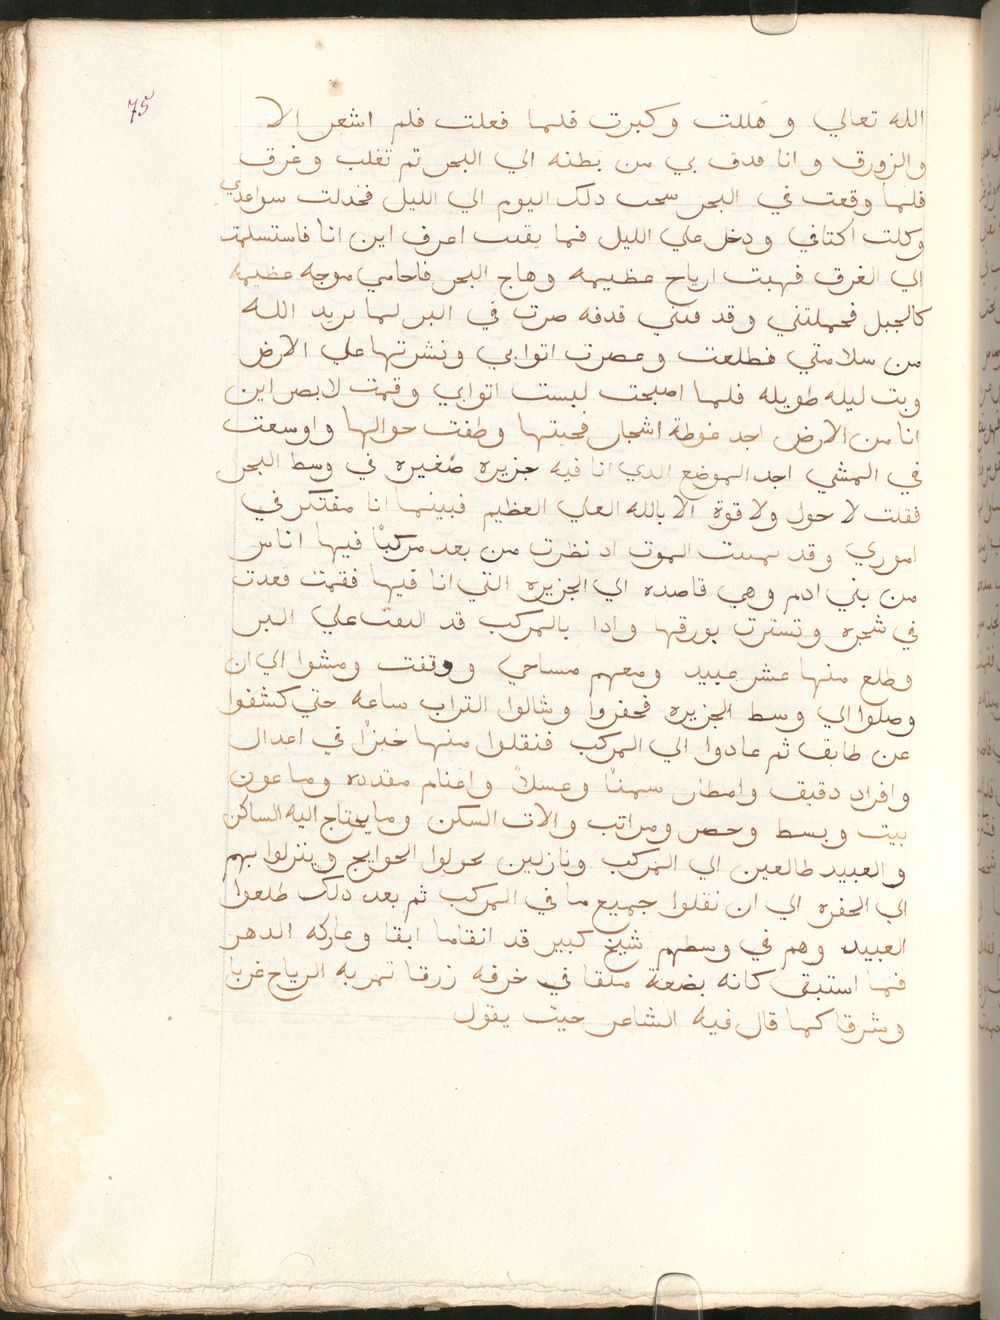 75
الله تعالي وهللت وكبرت فلما فعلت فلم اشعر الا
والزورق وانا قدف بي من بطنه الي البحر تم تقلب وغرق
فلما وقعت في البحر سحت دلك اليوم الي الليل فخدلت سواعدي
وكلت اكتافي ودخل علي الليل فما بقيت اعرف اين انا فاستسلمت
الي الغرق فهبت ارياح عظيمه وهاج البحر فاحامي موجه عظيمه
كالجبل فحملتني وقد فتني قدفه صرت في البر لما يريد الله
من سلامتي فطلعت وعصرت اتوابي ونشرتها علي الارض
وبت ليله طويله فلما اصبحت لبست اتوابي وقمت لابصر اين
انا من الارض اجد غوطة اشجار فجيتها وطفت حوالها واوسعت
في المشي اجد الموضع الدي انا فيه جزيره صغيره في وسط البحر
فقلت لا حول ولا قوة الا بالله العلي العظيم فبينما انا مفتكر في
اموري وقد تمنيت الموت اد نظرت من بعد مركباً فيها اناس
من بني ادم وهي قاصده الي الجزيره التي انا فيها فقمت قعدت
في شجره وتسترت بورقها وادا بالمركب قد التقت علي البر
وطلع منها عشر عبيد ومعهم مساحي ووقفت ومشوا الي ان
وصلوا الي وسط الجزيره فحفروا وشالوا التراب ساعه حتي كشفوا
عن طابق ثم عادوا الي المركب فنقلوا منها خبزاً في اعدال
وافراد دقيق وامطار سمناً وعسلاً واغنام مقدده وماعون
بيت وبسط وحصر ومراتب والات السكن وما يحتاج اليه الساكن
والعبيد طالعين الي المركب ونازلين يحولوا الحوايج وينزلوا بهم
الي الحفره الي ان نقلوا جميع ما في المركب ثم بعد دلك طلعوا
العبيد وهم في وسطهم شيخ كبير قد انقاما ابقا وعاركه الدهر
فما استبقى كانه بضعة ملقا في خرقه زرقا تمر به الرياح غربا
وشرقا كما قال فيه الشاعر حيث يقول